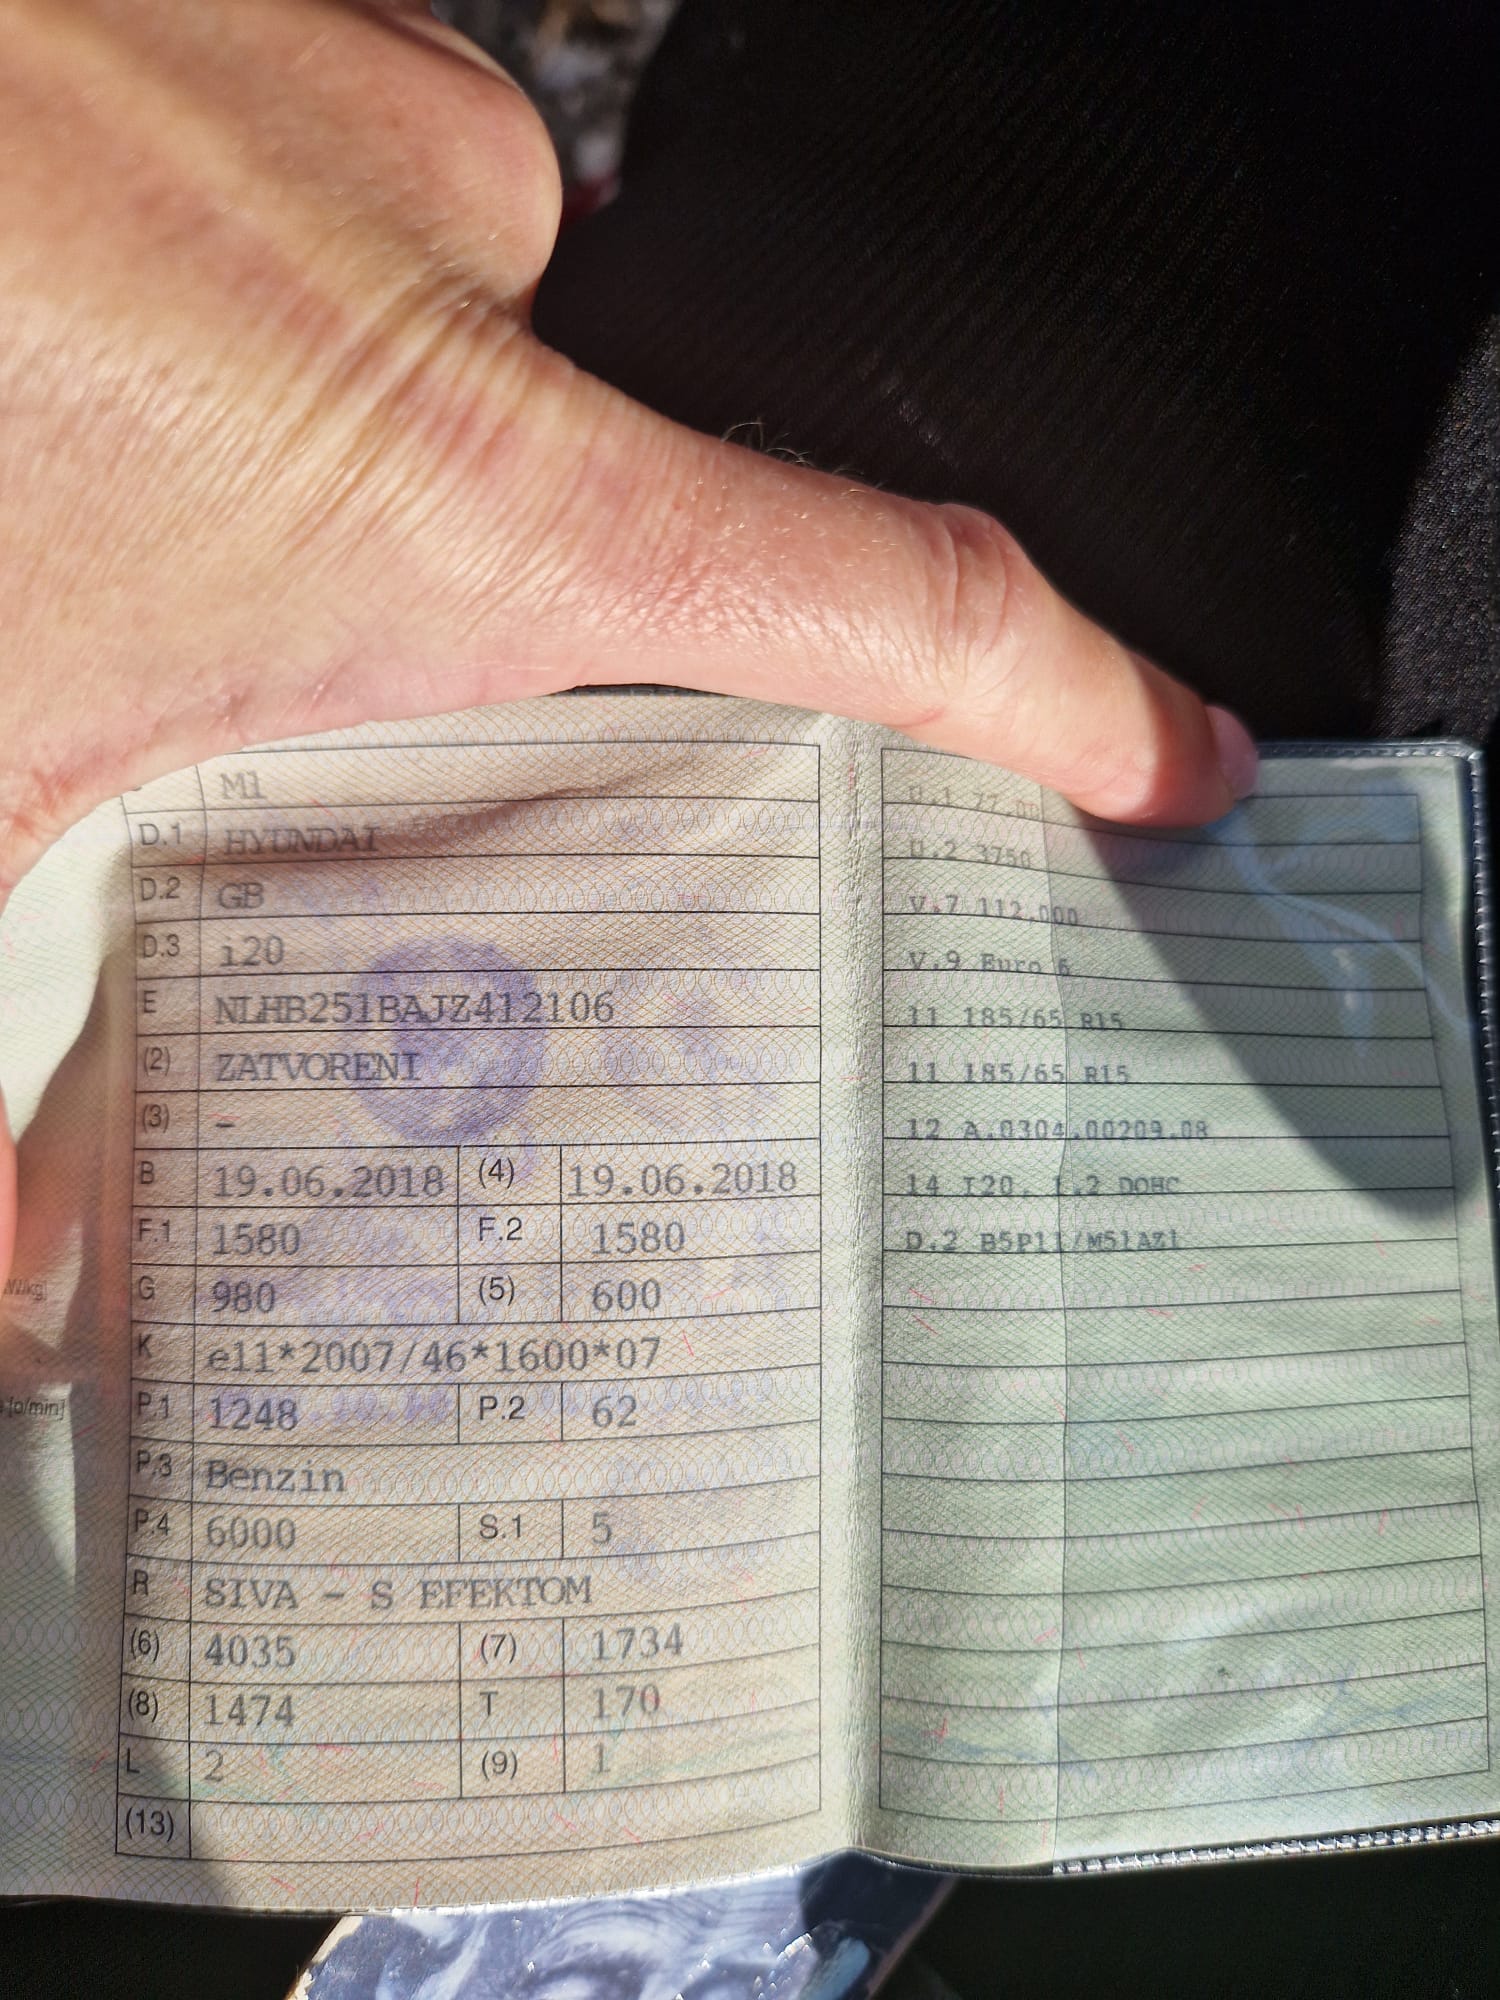 M1
D.1 HYUNDAI
D.2 GB
D.3 i20
E NLHB251BAJZ412106
(2) ZATVORENI
(3) -
B 19.06.2018 (4) 19.06.2018
F.1 1580 F.2 1580
G 980 (5) 600
K e11*2007/46*1600*07
P.1 1248 P.2 62
P.3 Benzin
P.4 6000 S.1 5
R SIVA - S EFEKTOM
(6) 4035 (7) 1734
(8) 1474 T 170
L 2 (9) 1
(13)
W/kg]
[o/min]
U.1 77.00
U.2 3750
V.7 112.000
V.9 Euro 6
11 185/65 R15
11 185/65 R15
12 A.0304.00209.08
14 I20, 1.2 DOHC
D.2 B5P11/M51AZ1